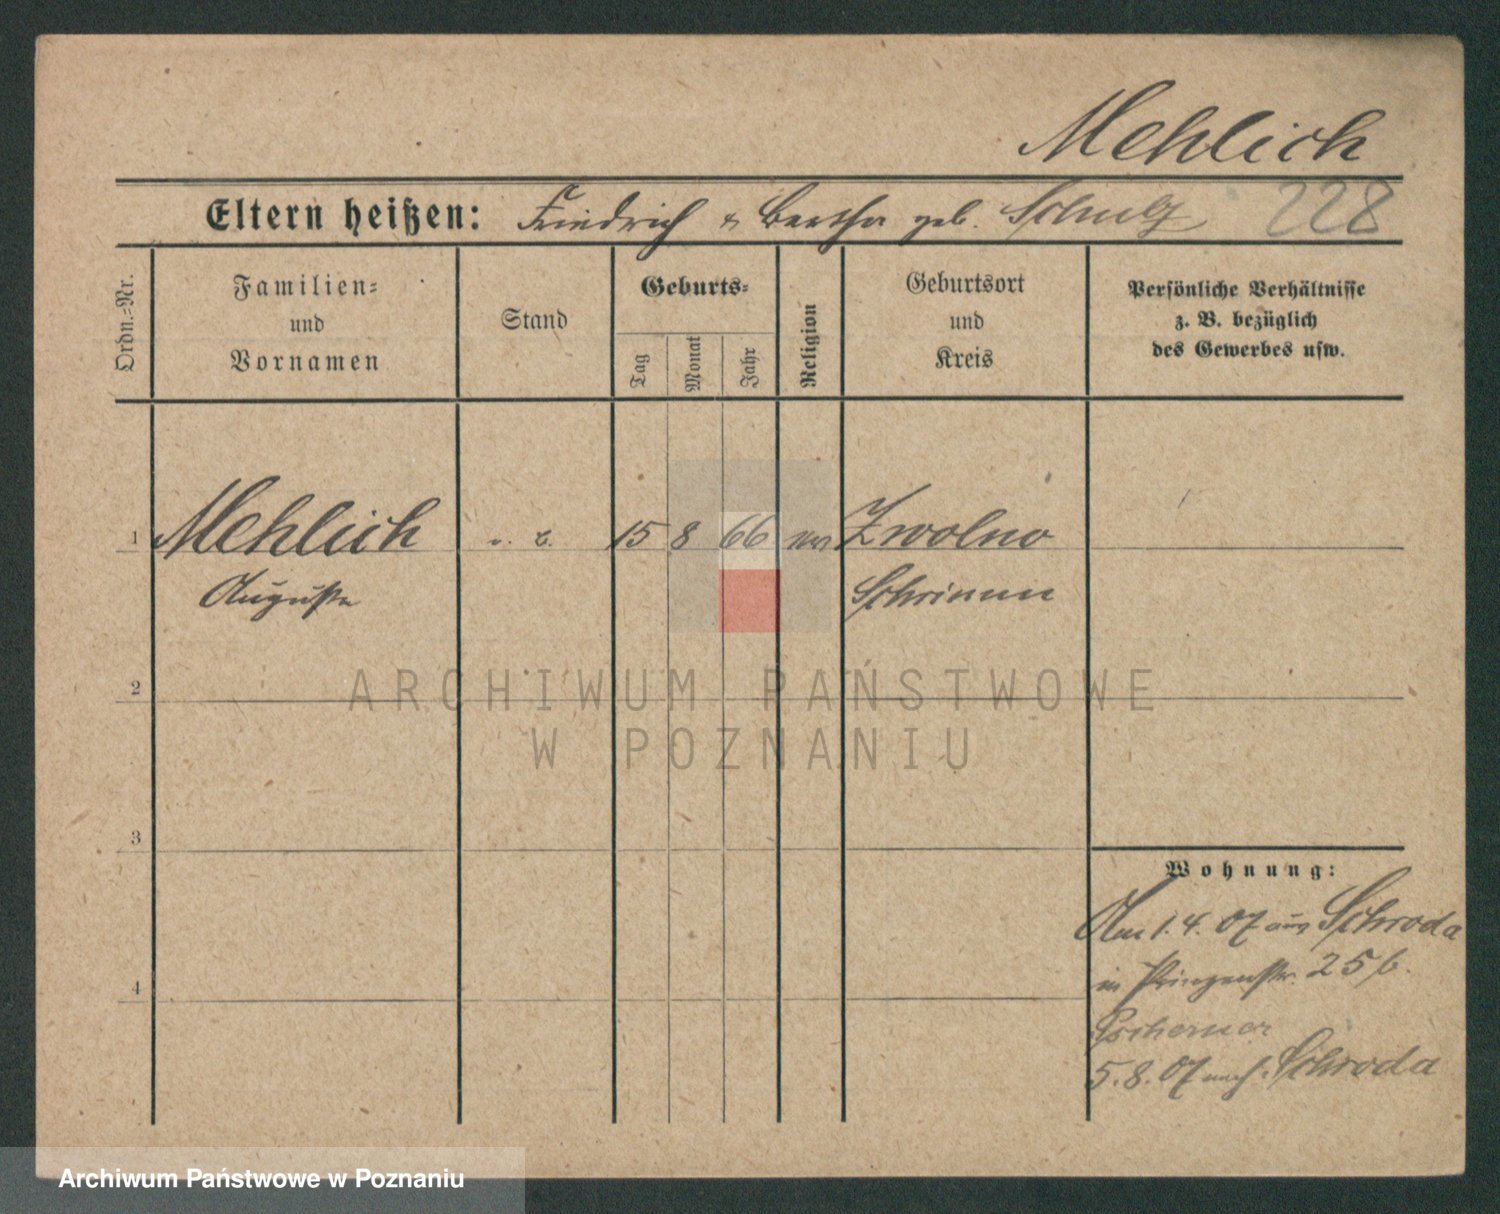 Mehlich
Eltern heißen: Friedrich & Bertha geb. Schulz 228
Ordn.-Nr.
Familien- und Vornamen
Stand
Geburts-
Tag
Monat
Jahr
Religion
Geburtsort und Kreis
Persönliche Verhältnisse
z. B. bezüglich
des Gewerbes usw.
1 Mehlich 15 8 66 Zwolno
Auguste Schrimm
2
ARCHIWUM PAŃSTWOWE
W POZNANIU
3
Wohnung:
Am 1.4.07 aus Schroda
in Prinzenstr. 25 b.
4
5.8.07 nach Schroda
Archiwum Państwowe w Poznaniu